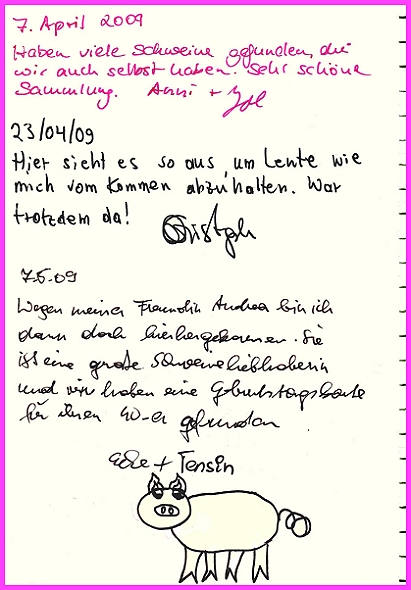 7. April 2009
Haben viele Schweine gefunden, die
wir auch selbst haben. Sehr schöne
Sammlung. Anni +
23/04/09
Hier sieht es so aus, um Leute wie
mich vom Kommen abzuhalten. War
trotzdem da!
7.5.09
Wegen meiner Freundin Andrea bin ich
dann doch hierhergekommen. Sie
ist eine große Schweineliebhaberin
und wir haben eine Geburtstagskarte
für ihren 40-er gefunden